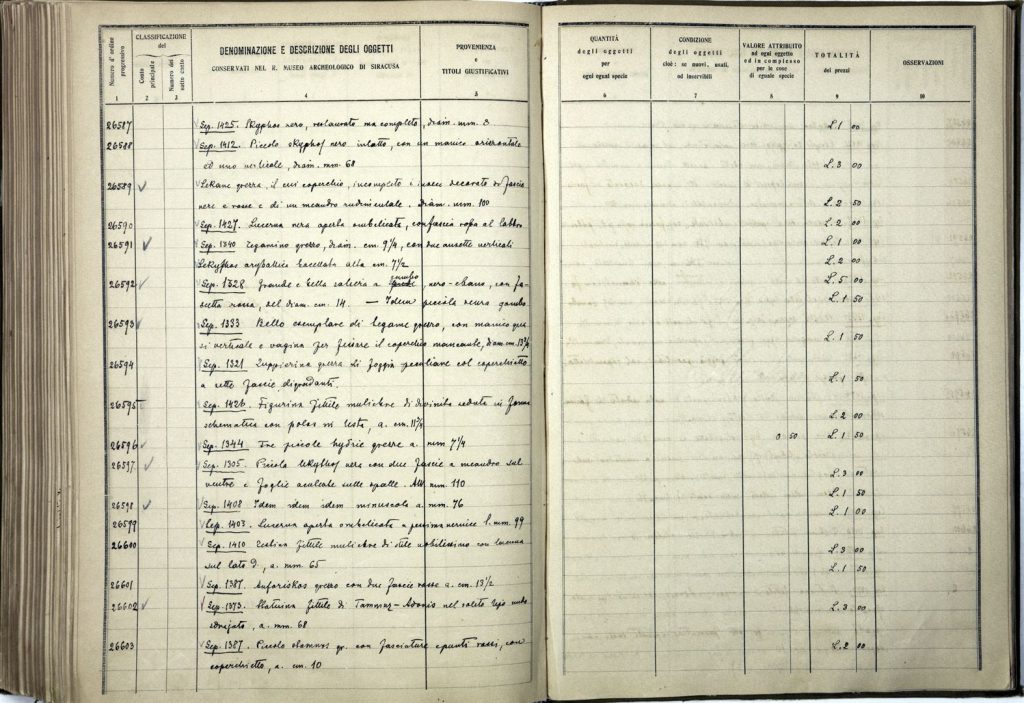 Numero d'ordine progressivo
CLASSIFICAZIONE
del
Conto principale
Numero del sotto conto
DENOMINAZIONE E DESCRIZIONE DEGLI OGGETTI
CONSERVATI NEL R. MUSEO ARCHEOLOGICO DI SIRACUSA
PROVENIENZA
e
TITOLI GIUSTIFICATIVI
1 2 3 4 5
26587 Sep. 1425. Skyphos nero, restaurato ma completo, diam. mm.
26588 Sep. 1412. Piccolo skyphos nero intatto, con un manico orizzontale
ed uno verticale, diam. mm. 68
26589 Lekane grezza, il cui coperchio, incompleto è invece decorato di fascie
nere e rosse e di un meandro rudimentale. Diam. mm. 100
26590 Sep. 1427. Lucerna nera aperta ombelicata, con fascia rossa al labbro
26591 Sep. 1340 Tegamino grezzo, diam. cm. 9 1/4, con due ansette verticali
Lekythos aryballica baccellata alta cm. 7 1/2
26592 Sep. 1328. Grande e bella in a gambo, nero-ebano, con fa-
scetta rossa, del diam. cm. 14. — Idem piccola senza gambo
26593 Sep. 1333 Bello esemplare di tegame grezzo, con manico
verticale e vagina per fissare il coperchio mancante, diam. cm. 13
26594 Sep. 1321 Zuppierina grezza di foggia peculiare col coperchietto
a sette fascie digradanti.
26595 Sep. 1426. Figurina fittile muliebre di divinità seduta in forma
schematica con polos in testa, a. cm.
26596 Sep. 1344 Tre piccole hydrie grezze a. mm. 7 1/4
26597 Sep. 1305. Piccola lekythos nera con due fascie a meandro sul
ventre e foglie aculeate sulle spalle. Alt. mm. 110
26598 Sep. 1408 Idem idem idem minuscola a. mm. 76
26599 Sep. 1403. Lucerna aperta ombelicata a pessima vernice l. mm. 99
26600 Sep. 1410 Testina fittile muliebre di stile nobilissimo con lacuna
sul lato d, a. mm. 65
26601 Sep. 1387. Anforiskos grezzo con due fascie rosse a. cm. 13 1/2
26602 Sep. 1373. Statuina fittile di Tammuz-Adonis nel solito tipo nudo
sdraiato, a. mm. 68
26603 Sep. 1387. Piccolo stamnos gr. con fasciature e punti rossi, con
coperchietto, a. cm. 10
QUANTITÀ
degli oggetti
per
ogni egual specie
CONDIZIONE
degli oggetti
cioè: se nuovi, usati,
od inservibili
VALORE ATTRIBUITO
ad ogni oggetto
od in complesso
per le cose
di eguale specie
TOTALITÀ
dei prezzi
OSSERVAZIONI
6 7 8 9 10
L. 1 00
L. 3 00
L. 2 50
L. 2 00
L. 1 00
L. 2 00
L. 5 00
L. 1 50
L. 1 50
L. 1 50
L. 2 00
0 50 L. 1 50
L. 3 00
L. 1 50
L. 1 00
L. 3 00
L. 1 50
L. 3 00
L. 2 00